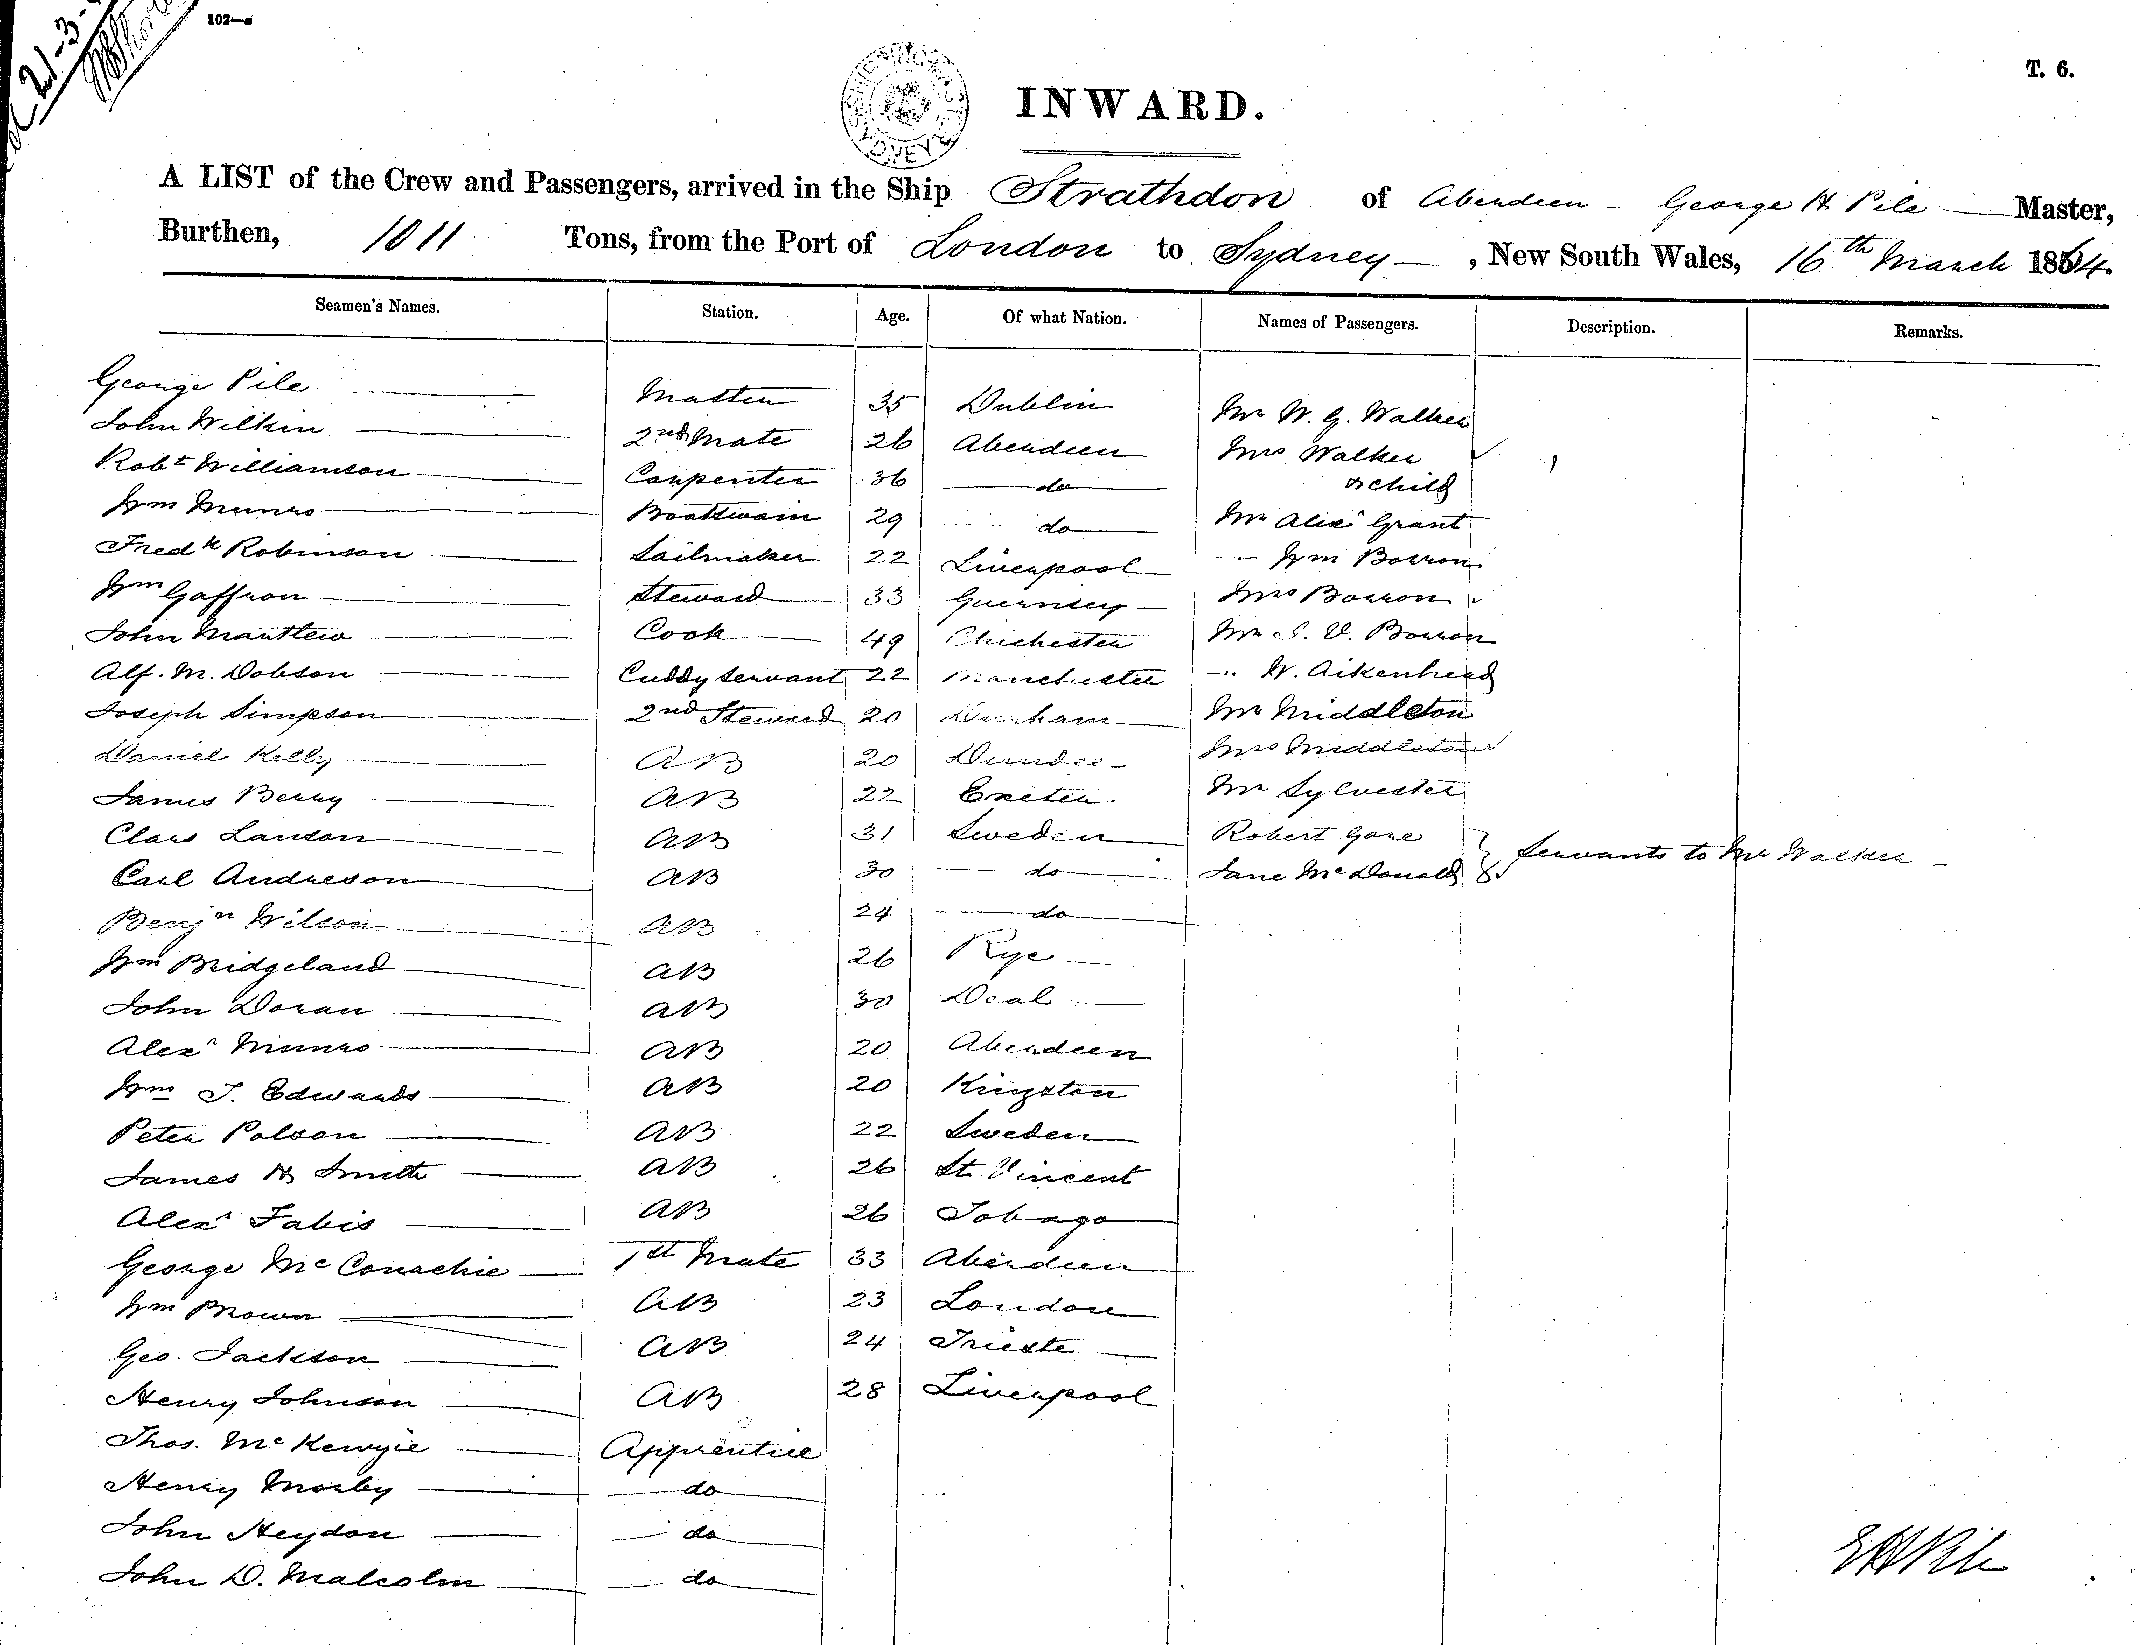 102—a
21-3-
T. 6.
INWARD.
A LIST of the Crew and Passengers, arrived in the Ship Strathdon of Aberdeen - George H Pile Master,
Burthen, 1011 Tons, from the Port of London to Sydney, New South Wales, 16th March 1864.
Seamen's Names. Station. Age. Of what Nation. Names of Passengers. Description. Remarks.
George Pile Master 35 Dublin Mr W. G. Walker
John Wilkin 2nd Mate 26 Aberdeen Mrs Walker
Robt Williamson Carpenter 36 do & child
Wm Munro Boatswain 29 do Mr Alexr Grant
Fredk Robinson Sailmaker 22 Liverpool " Wm Borron
Wm Gaffron Steward 33 Guernsey Mrs Borron
John Manttew Cook 49 Chichester Mr V. Borron
Alf. M. Dobson Cuddy Servant 22 Manchester " W. Aikenhead
Joseph Simpson 2nd Steward 20 Durham Mr Middleton
Daniel Kelly AB 20 Dundee Mrs Middleton
James Berry AB 22 Exeter Mr Sylvester
Claus Lauson AB 31 Sweden Robert Gore
Carl Andreson AB 30 do Jane McDonald Servants to Mr Walker
Benjn Wilson AB 24 do
Wm Bridgeland AB 26 Rye
John Doran AB 30 Deal
Alexr Munro AB 20 Aberdeen
Wm T. Edwards AB 20 Kingston
Peter Polson AB 22 Sweden
James H Smith AB 26 St. Vincent
Alexr Fabis AB 26 Tobago
George McConachie 1st Mate 33 Aberdeen
Wm Brown AB 23 London
Geo. Jackson AB 24 Trieste
Henry Johnson AB 28 Liverpool
Thos. McKewyie Apprentice
Henry Morby do
John Heydon do
John D. Malcolm do